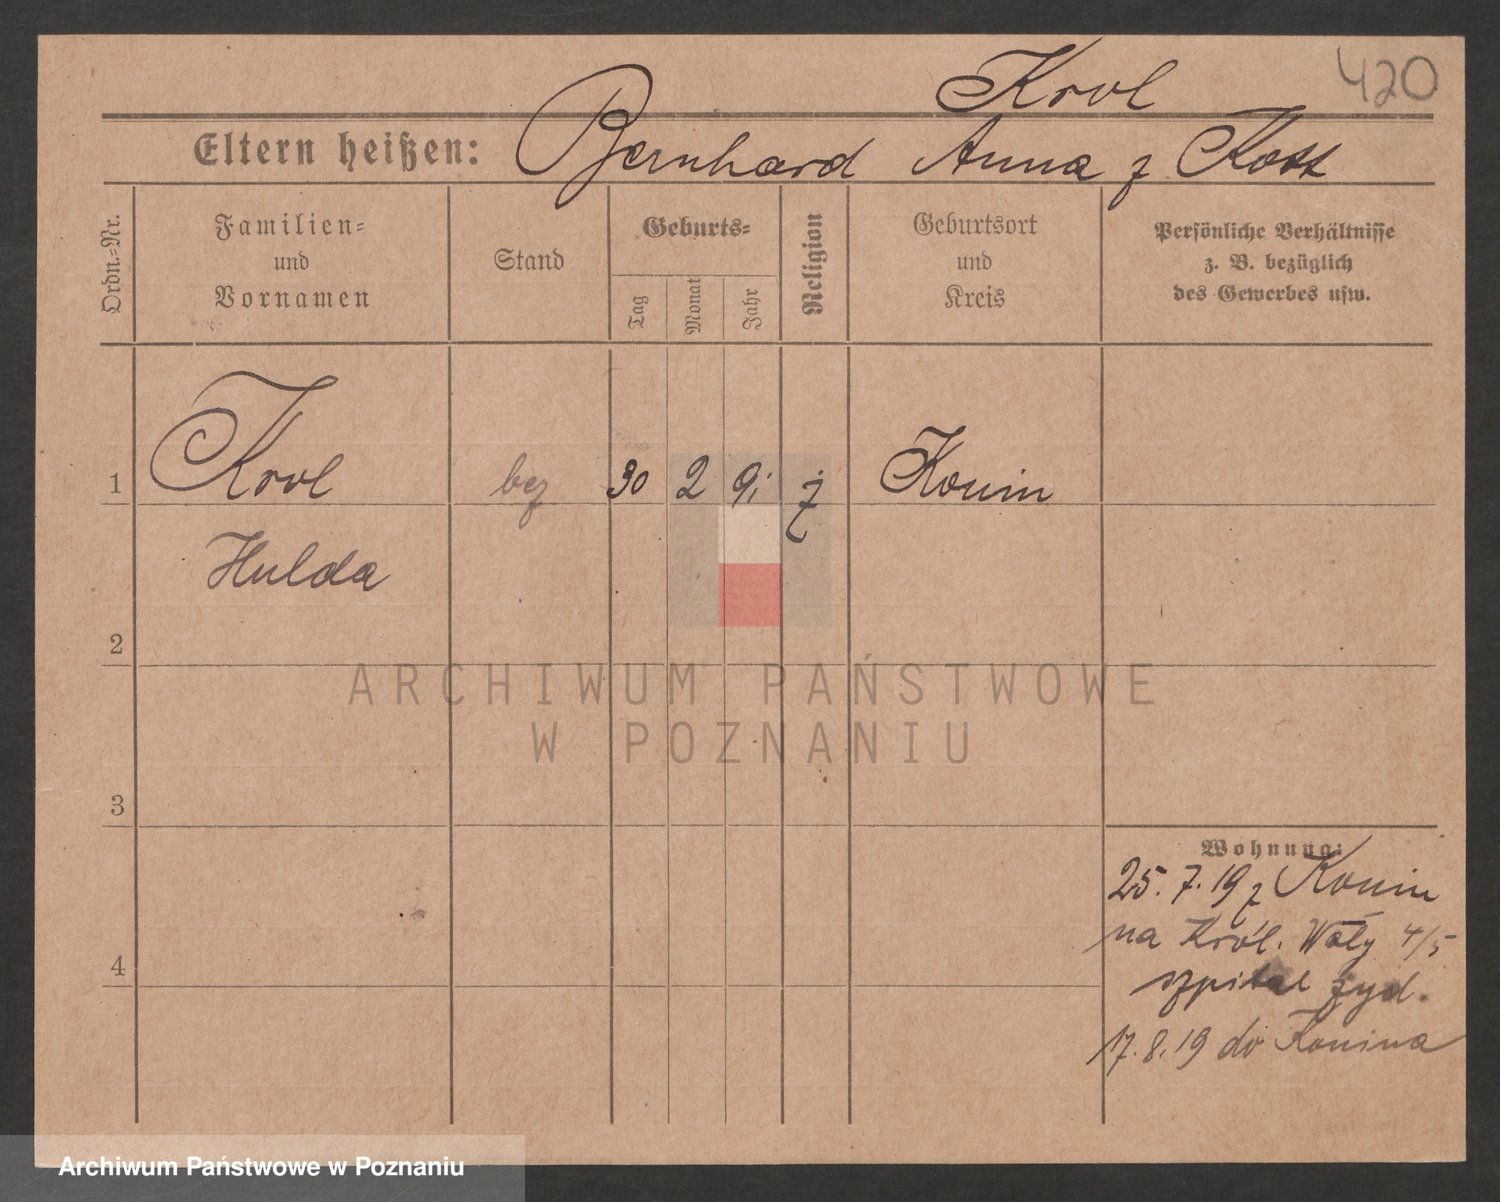 Krol
420
Eltern heißen: Bernhard Anna z Kott
Ordn.-Nr.
Familien-
und
Vornamen
Stand
Geburts-
Tag
Monat
Jahr
Religion
Geburtsort
und
Kreis
Persönliche Verhältnisse
z. B. bezüglich
des Gewerbes usw.
1 Krol bez 30 2 j Konin
Hulda
2
ARCHIWUM PAŃSTWOWE
W POZNANIU
3
Wohnung:
25. 7. 19 z Konin
na Król. Wały 4/5
4
szpital żyd.
17. 8. 19 do Konina
Archiwum Państwowe w Poznaniu